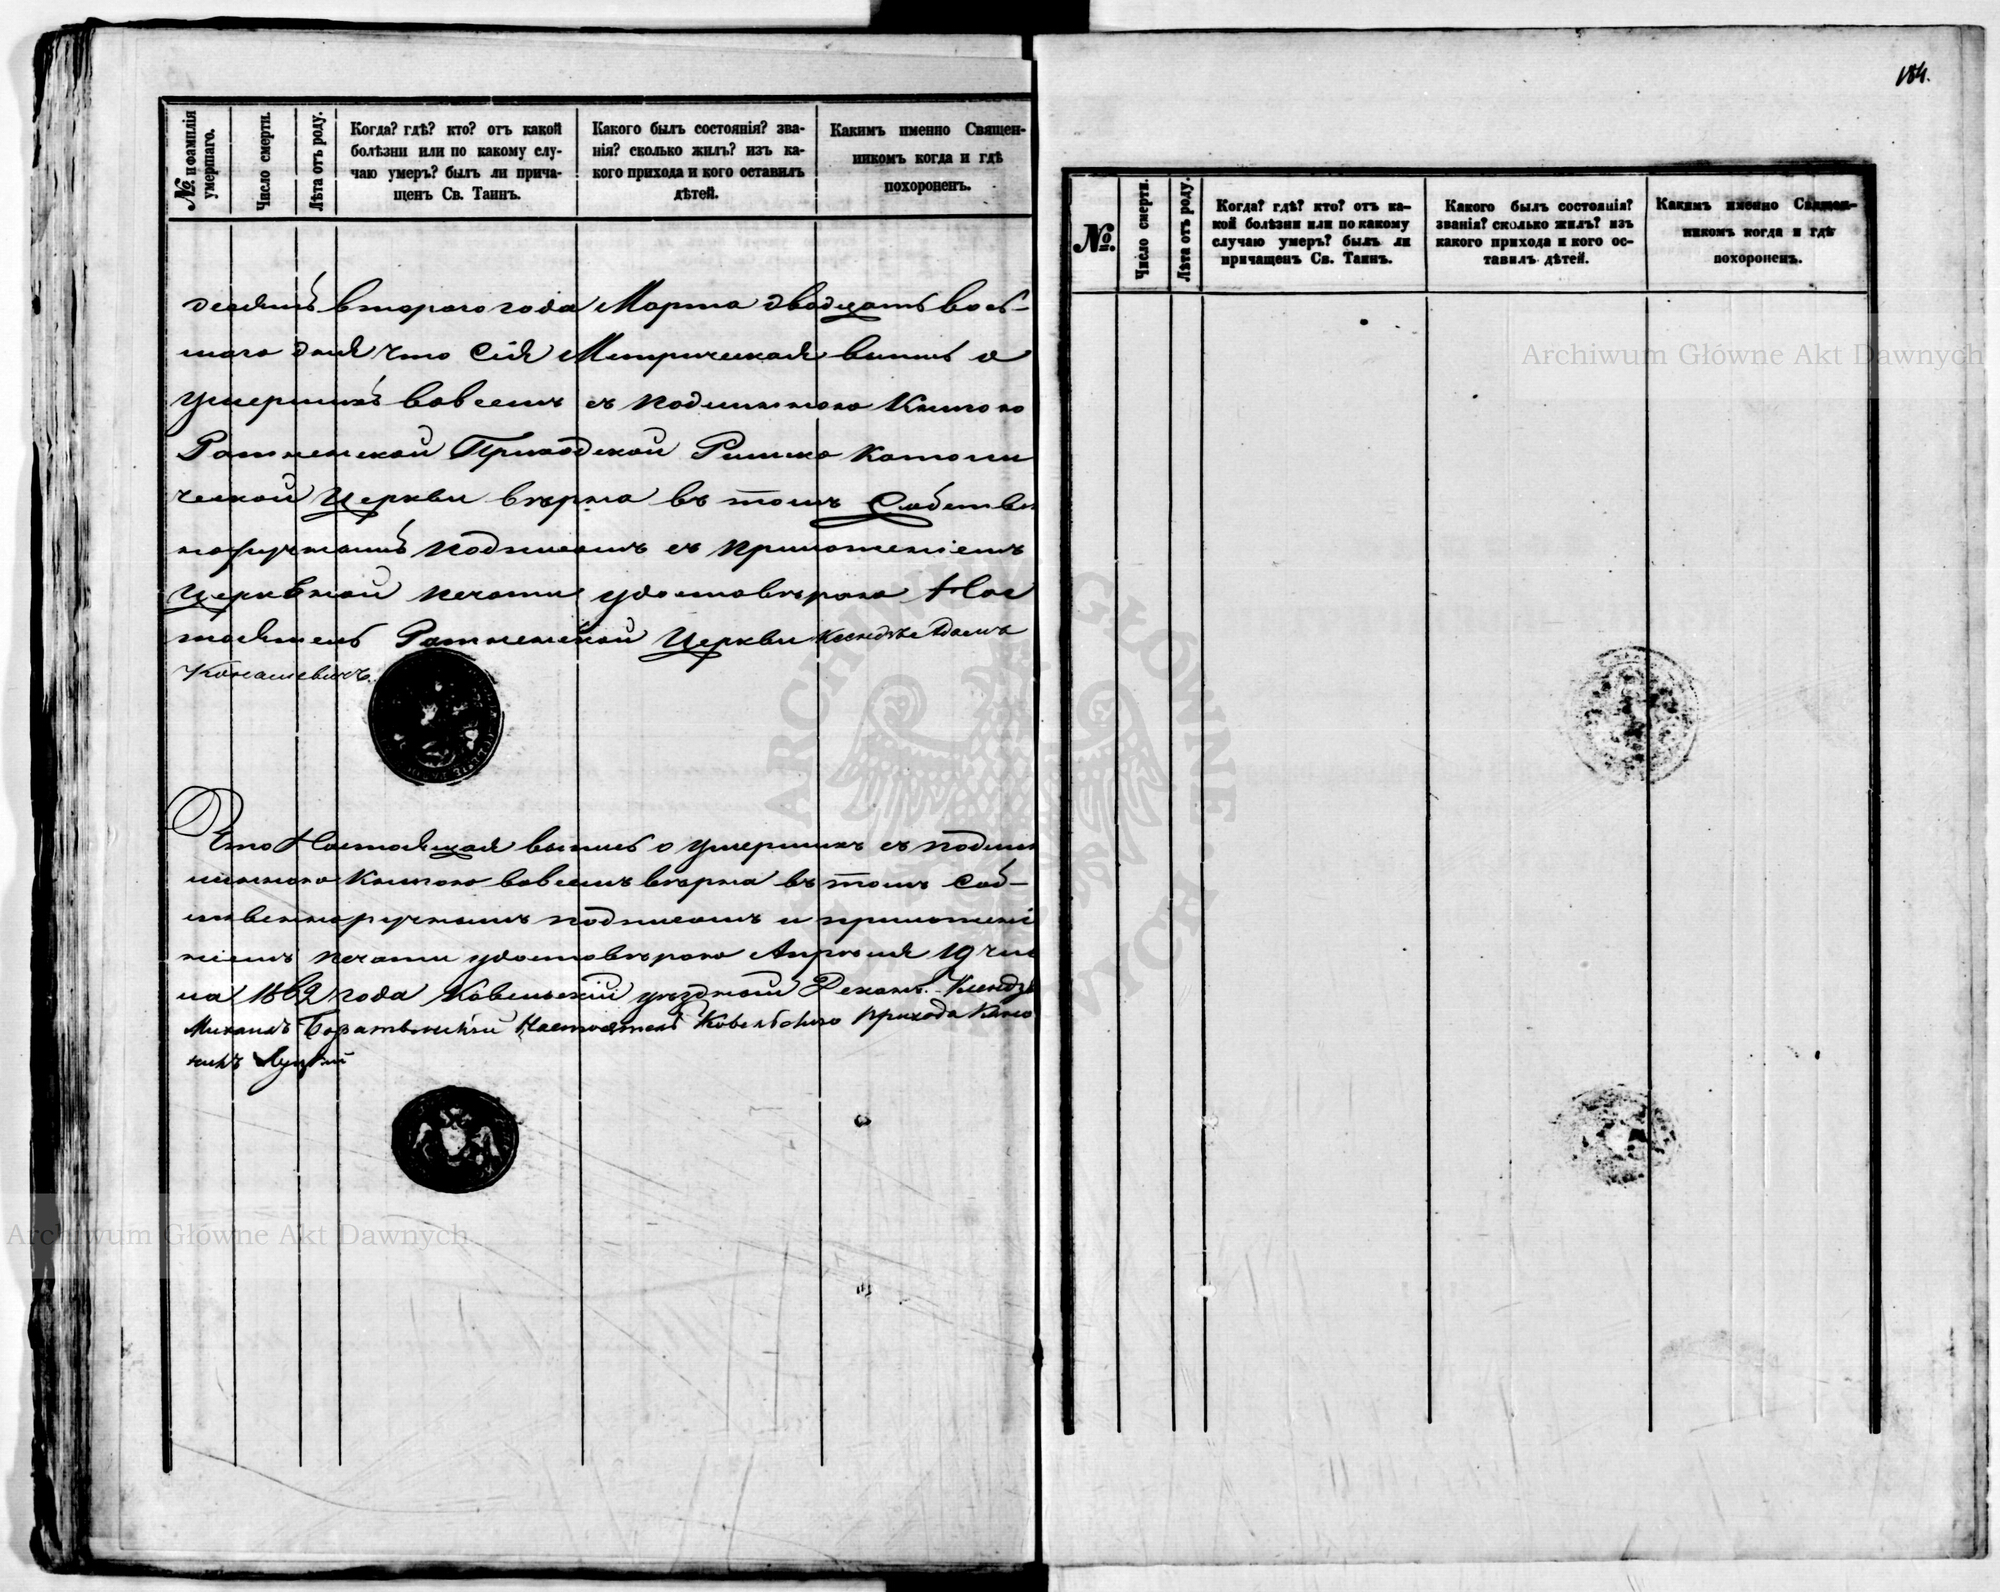 184.
№ и фамилія умершаго.
Число смерти.
Лѣта отъ роду.
Когда? гдѣ? кто? отъ какой
болѣзни или по какому слу-
чаю умеръ? былъ ли прича-
щенъ Св. Таинъ.
Какого былъ состоянія? зва-
нія? сколько жилъ? изъ ка-
кого прихода и кого оставилъ
дѣтей.
Какимъ именно Священ-
никомъ когда и гдѣ
похороненъ.
десятъ втораго года Марта двадцать вось-
маго дня что сія Метрическая выпись о
умершихъ вовсемъ съ подлинною Книгою
Ратненской Приходской Римско Католи
ческой Церкви вѣрна въ томъ Собствен
норучнымъ подписомъ съ приложеніемъ
Церковной печати удостовѣряю Нас
тоятель Ратненской Церкви Ксендзъ Адамъ
Что Настоящая выпись о умершихъ съ подли
нною Книгою вовсемъ вѣрна въ томъ Соб-
ственноручнымъ подписомъ и приложені
ніемъ печати удостовѣряю Апрѣля 19 чис
ла 1862 года Ковельскій уѣздный Деканъ Ксендзъ
Михаилъ Настоятель Ковельскаго прихода Кано
никъ Луцкій
№.
Число смерти.
Лѣта отъ роду.
Когда? гдѣ? кто? отъ ка-
кой болѣзни или по какому
случаю умеръ? былъ ли
причащенъ Св. Таинъ.
Какого былъ состоянія?
званія? сколько жилъ? изъ
какого прихода и кого ос-
тавилъ дѣтей.
Какимъ именно Священ-
никомъ когда и гдѣ
похороненъ.
Archiwum Główne Akt Dawnych
ARCHIWUM GŁÓWNE AKT DAWNYCH
Archiwum Główne Akt Dawnych